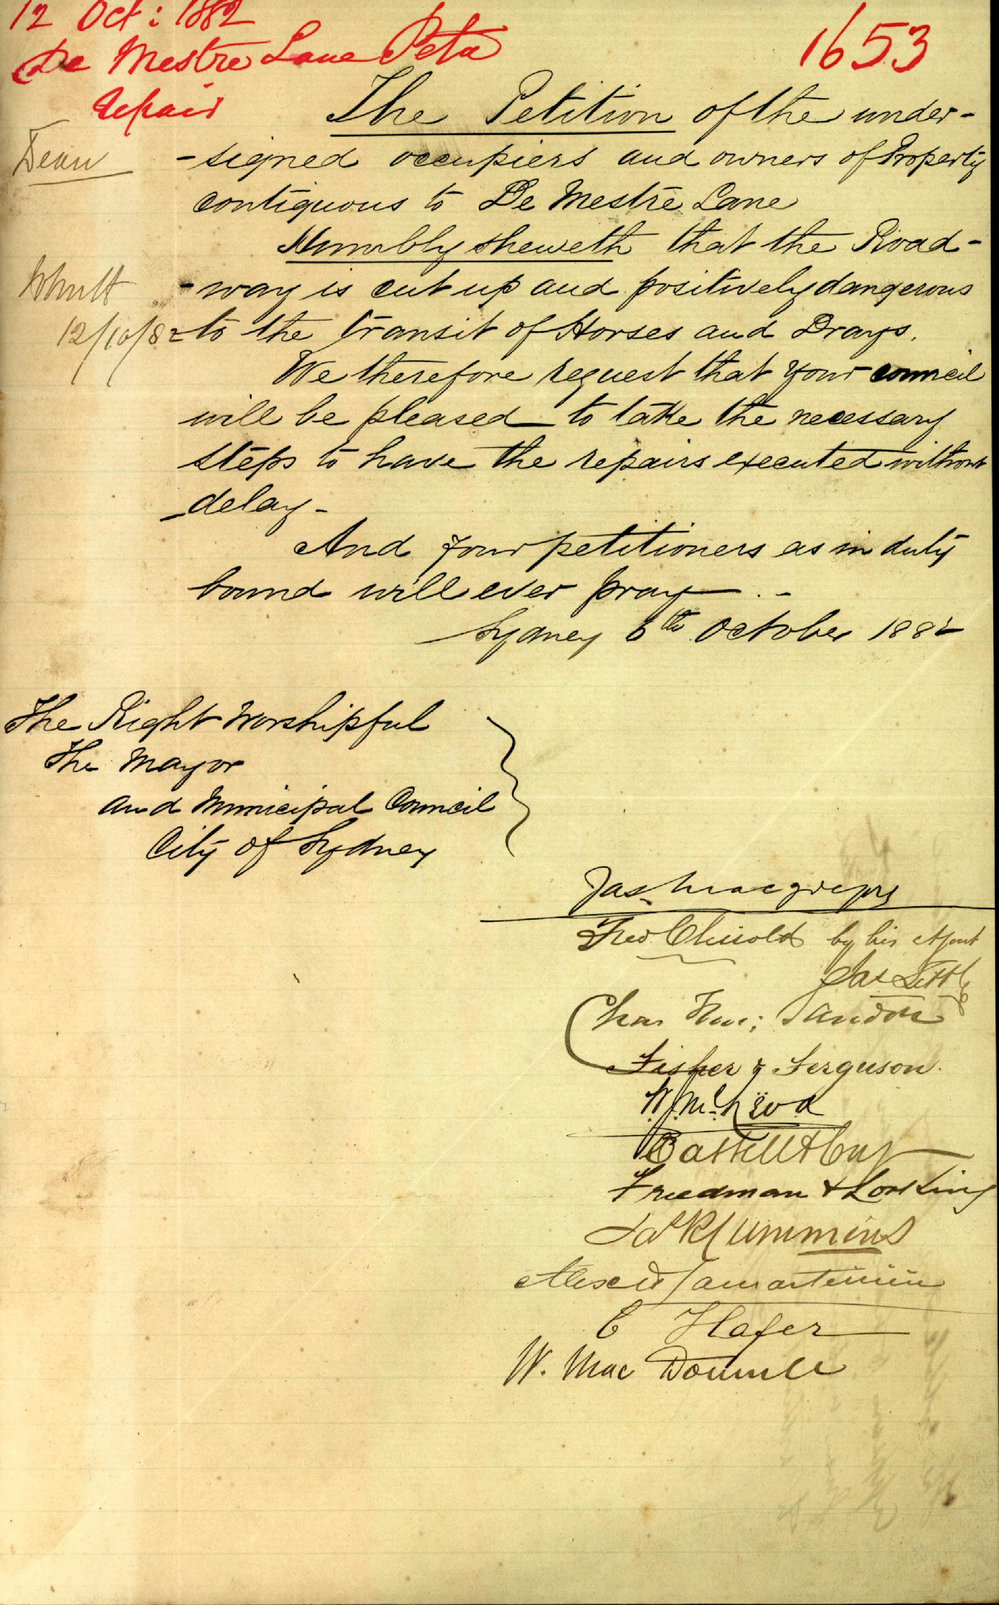 12 Oct: 1882
De Mestre Lane Petn
repair
1653
The Petition of the under-
-signed occupiers and owners of Property
contiguous to De Mestre Lane
Humbly sheweth that the Road-
-way is cut up and positively dangerous
to the transit of Horses and Drays.
We therefore request that your council
will be pleased to take the necessary
steps to have the repairs executed without
delay -
And your petitioners as in duty
bound will ever pray
Sydney 6th October 1882
12/10/82
The Right Worshipful
The Mayor
and Municipal Council
City of Sydney
Jas Macgregor
by his Agent
Fisher & Ferguson.
Friedman &
Cummins
C Hafer
W. Mac Donnell